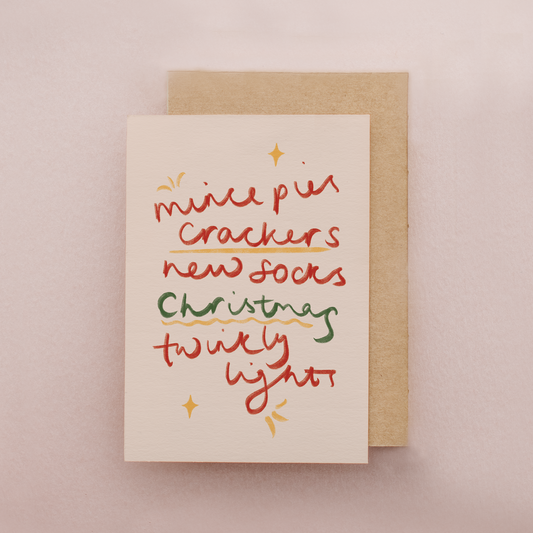 mince pies
crackers
new socks
Christmas
twinkly
lights